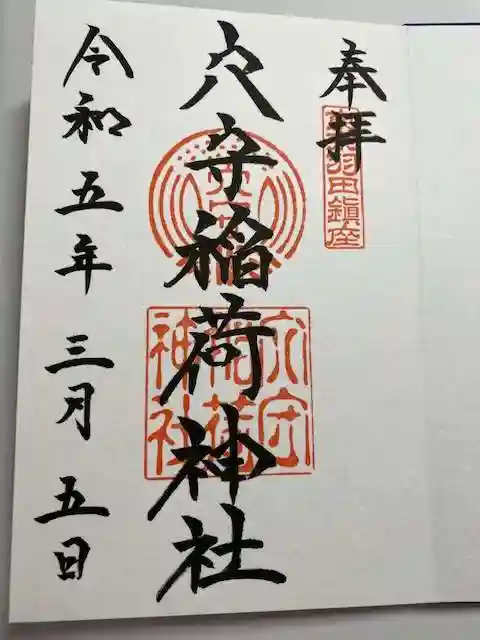 奉拝
羽田鎮座
穴守稲荷神社
穴守
稲荷
神社
令和五年三月五日